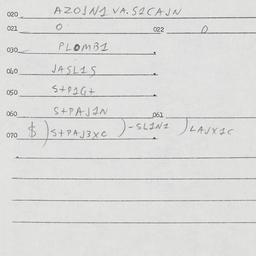 020 AZOJN1 VA. S1CAJN
021 0 022 0
030 PLOMB1
040 JASL1S
050 S+P1G+
060 S+PAJ1N 061
070 $)S+PAJ3XC)-SL1N1)LAJX1C